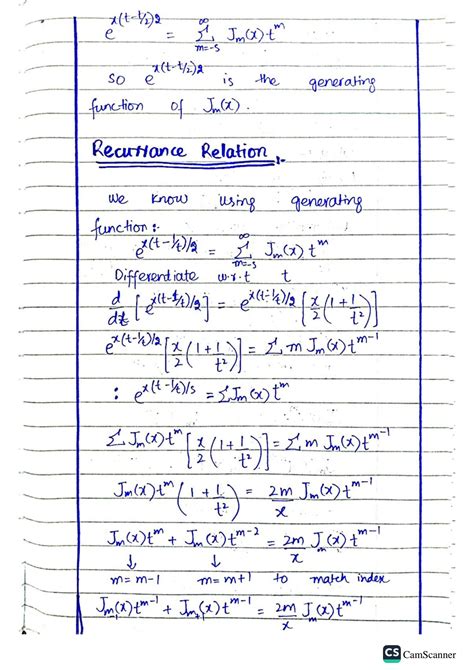 e^{x(t-1/2)2} = ∞Σm=-s J_m(x) t^m
so e^{x(t-t/2)2} is the generating
function of J_m(x).
Recurrance Relation :-
We know using generating
function :-
e^{x(t-1/t)/2} = ∞Σm=-s J_m(x) t^m
Differentiate w.r.t t
d/dt [e^{x(t-1/t)/2}] = e^{x(t-1/t)/2} [x/2 (1+1/t²)]
e^{x(t-1/t)/2} [x/2 (1+1/t²)] = Σ m J_m(x) t^{m-1}
: e^{x(t-1/t)/s} = Σ J_m(x) t^m
Σ J_m(x) t^m [x/2 (1+1/t²)] = Σ m J_m(x) t^{m-1}
J_m(x) t^m (1+1/t²) = 2m/x J_m(x) t^{m-1}
J_m(x) t^m + J_m(x) t^{m-2} = 2m/x J_m(x) t^{m-1}
↓ ↓
m=m-1 m=m+1 to match index
J_{m-1}(x) t^{m-1} + J_{m+1}(x) t^{m-1} = 2m/x J_m(x) t^{m-1}
CS CamScanner